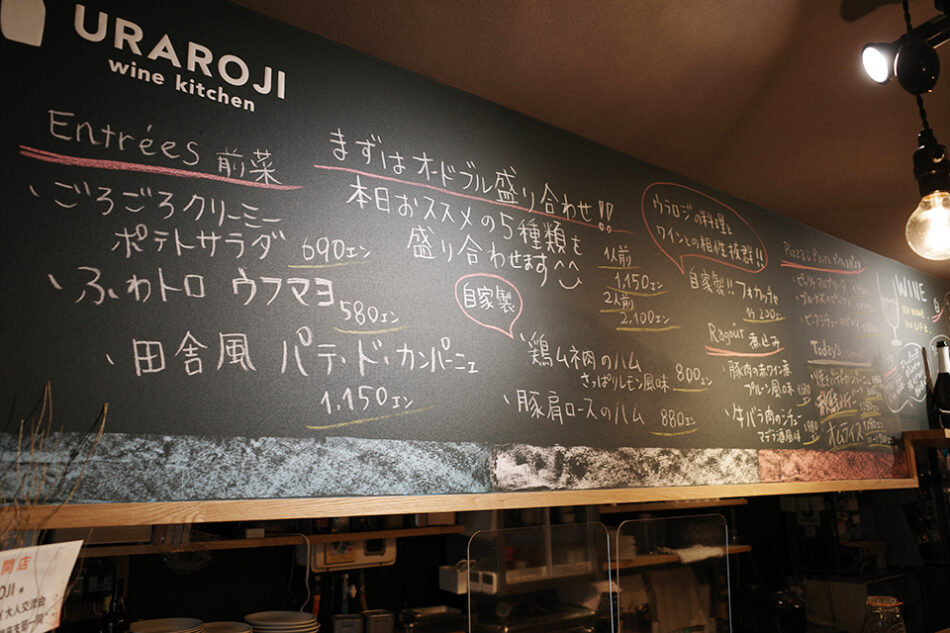 URAROJI
wine kitchen
Entrées 前菜
、ごろごろクリーミー
ポテトサラダ 690エン
、ふわトロ ウフマヨ
580エン
、田舎風 パテ・ド・カンパーニュ
1,150エン
まずはオードブル盛り合わせ!!
本日おススメの5種類を
盛り合わせます^^
1人前
1,150エン
2人前
2,100エン
自家製
、鶏ムネ肉のハム
さっぱりレモン風味 800エン
、豚肩ロースのハム 880エン
ウラロジの料理と
ワインとの相性抜群!!
自家製!! フォカッチャ
200エン
Ragoût 煮込み
、豚肉の赤ワイン煮
プルーン風味
、牛バラ肉のシチュー
マデラ酒風味
Today's
オムライス
WINE
NO WINE
NO LIFE
開店
OJI
大人交流会